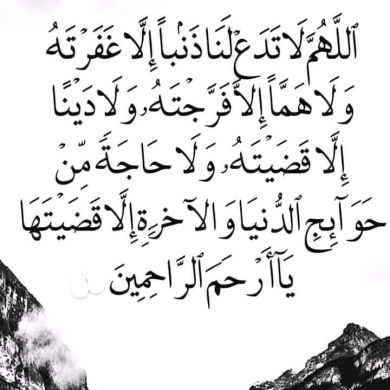 اَللَّهُمَّ لَا تَدَعْ لَنَا ذَنْباً إِلَّا غَفَرْتَهُ
وَلَا هَمًّا إِلاَّ فَرَّجْتَهُ، وَلَا دَيْنًا
إِلَّا قَضَيْتَهُ، وَلَا حَاجَةً مِّنْ
حَوَآئِجِ الدُّنْيَا وَالآخِرَةِ إِلَّا قَضَيْتَهَا
يَآأَرْحَمَ الرَّاحِمِينَ